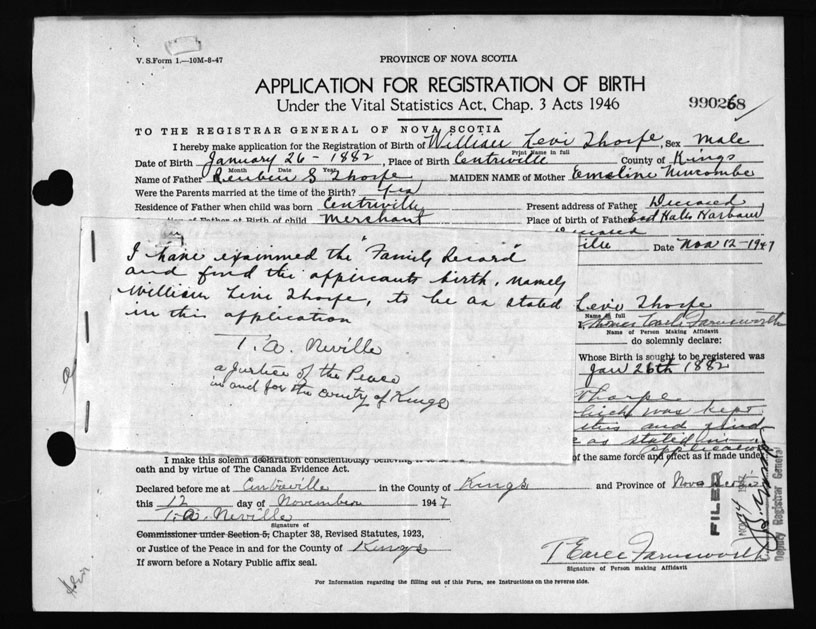 V. S. Form 1.—10M-8-47
PROVINCE OF NOVA SCOTIA
APPLICATION FOR REGISTRATION OF BIRTH
Under the Vital Statistics Act, Chap. 3 Acts 1946
990268
TO THE REGISTRAR GENERAL OF NOVA SCOTIA
I hereby make application for the Registration of Birth of William Levi Thorpe, Sex Male
Print Name in full
Date of Birth January 26 - 1882, Place of Birth Centreville County of Kings
Month Date Year
Name of Father Reuben S Thorpe MAIDEN NAME of Mother Emeline Newcombe
Were the Parents married at the time of the Birth? Yes
Residence of Father when child was born Centreville Present address of Father Deceased
at Birth of child Merchant Place of birth of Father East Halls Harbour
Deceased
ville Date Nov 12-1947
I have examined the "Family Record"
and find the applicants birth, namely
William Levi Thorpe, to be as stated
in this application
T. A. Neville
a Justice of the Peace
in and for the County of Kings
Levi Thorpe
Name in full
Earle Farnsworth
Name of Person Making Affidavit
do solemnly declare:
Whose Birth is sought to be registered was
Jan 26th 1882
Thorpe
which was kept
this and find
as stated in
application
I make this solemn declaration conscientiously believing it to be
of the same force and effect as if made under
oath and by virtue of The Canada Evidence Act.
Declared before me at Centreville in the County of Kings and Province of Nova Scotia
this 12 day of November 1947
T. A. Neville
Signature of
Commissioner under Section 5, Chapter 38, Revised Statutes, 1923,
or Justice of the Peace in and for the County of Kings
If sworn before a Notary Public affix seal.
T Earle Farnsworth
Signature of Person making Affidavit
FILED
NOV 24
Deputy Registrar General
For Information regarding the filling out of this Form, see Instructions on the reverse side.